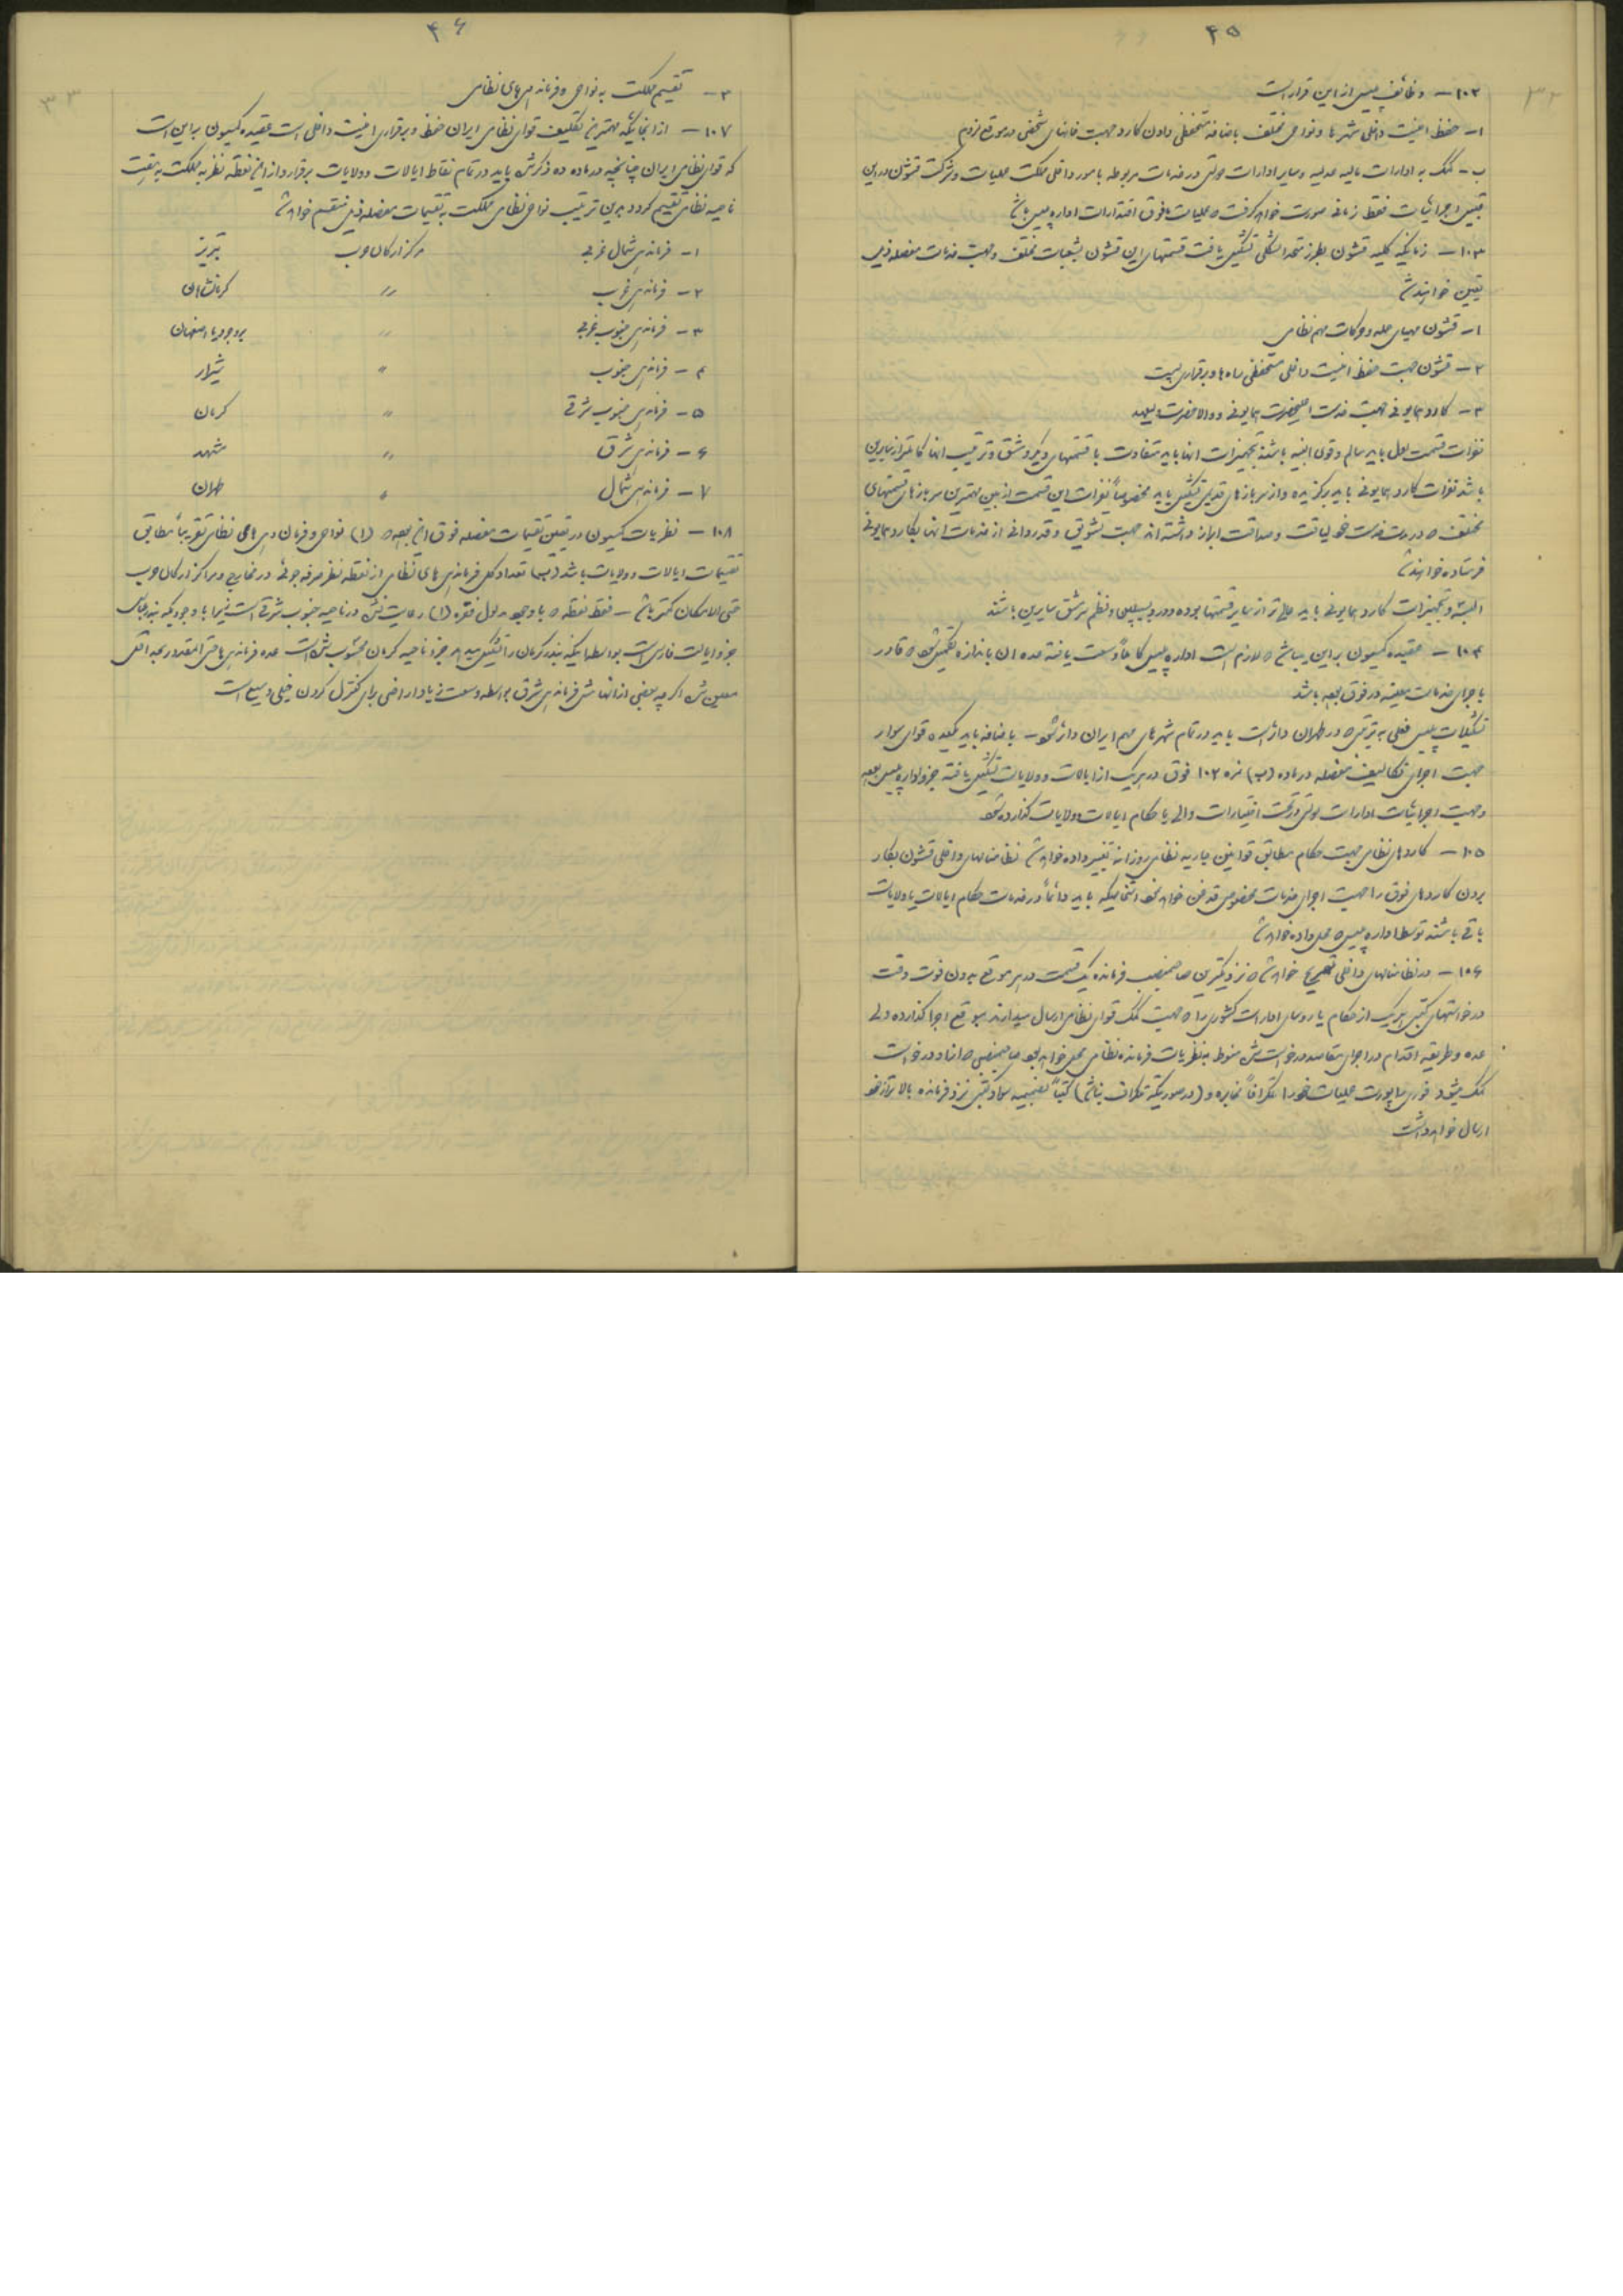 ۴۵
۳۲
۱۰۲ – وظائف پلیس از این قرار است
۱ – حفظ امنیت داخلی شهرها و نواحی مختلف باضافه مستحفظی دادن کارد جهت خانهای شخصی در موقع لزوم
ب – کمک به ادارات مالیه عدلیه و سایر ادارات دولتی در خدمات مربوطه بامور داخلی مملکت عملیات و شرکت قشون در این
قبیل اجرائیات فقط زمانی صورت خواهد گرفت که عملیات مافوق اقتدارات اداره پلیس باشد
۱۰۳ – زمانیکه کلیه قشون بطرز متحدالشکلی تشکیل یافت قسمتهای این قشون بشعبات مختلف و جهت خدمات مفصله ذیل
تعیین خواهند شد
۱ – قشون مهیای حمله و حرکات مهم نظامی
۲ – قشون جهت حفظ امنیت داخلی مستحفظی راه ها و برقراری
۳ – کارد همایونی جهت خدمت اعلیحضرت همایونی و والاحضرت ولیعهد
نفرات قسمت اول باید سالم و قوی البنیه باشند تجهیزات انها باید متفاوت با قسمتهای دیگر و مشق و ترتیب انها کاملتر از سایرین
باشد نفرات کارد همایونی باید برگزیده و از سربازهای قدیمی تشکیل یابد مخصوصاً نفرات این قسمت از بین بهترین سربازهای قسمتهای
مختلف که در مدت خدمت خود لیاقت و صداقت ابراز داشته اند جهت تشویق و قدردانی از خدمات انها بکارد همایونی
فرستاده خواهند شد
البسه و تجهیزات کارد همایونی باید عالی تر از سایر قسمتها بوده و در دیسیپلین و نظم سرمشق سایرین باشند
۱۰۴ – عقیده کمیسیون بر این میباشد که لازم است اداره پلیس کاملاً وسعت یافته عده ان باندازه تکمیل شود که قادر
باجرای خدمات معینه در فوق بوده باشد
تشکیلات پلیس فعلی به ترتیبی که در طهران دائر است باید در تمام شهرهای مهم ایران دائر شود – باضافه باید یکعده قوای سوار
جهت اجرای تکالیف مفصله در ماده (ب) نمره ۱۰۲ فوق در هر یک از ایالات و ولایات تشکیل یافته جزو اداره پلیس بوده
و جهت اجرائیات ادارات دولتی در تحت اختیارات والی یا حکام ایالات و ولایات گذارده شود
۱۰۵ – کاردهای نظامی جهت حکام مطابق قوانین جاریه نظامی روزانه تغییر داده خواهد شد نظامنامهای داخلی قشون بکار
بردن کاردهای فوق را جهت اجرای خدمات مخصوص قدغن خواهد نمود اشخاصیکه باید دائماً در خدمات حکام ایالات یا ولایات
باقی باشند توسط اداره پلیس محل داده خواهد شد
۱۰۶ – در نظامنامهای داخلی تصریح خواهد شد که نزدیکترین صاحبمنصب فرمانده یک قسمت در هر موقع بدون فوت وقت
درخواستهای کتبی هر یک از حکام یا روسای ادارات کشوری را که جهت کمک قوای نظامی ارسال میدارند بموقع اجرا گذارده ولی
عده و طریقه اقدام در اجرای مقاصد درخواست شده منوط به نظریات فرمانده نظامی محل خواهد بود صاحبمنصبی که از او درخواست
کمک میشود فوری راپورت عملیات خود را تلگرافاً مخابره و (در صورتیکه تلگراف نباشد) کتباً بضمیمه سواد کتبی نزد فرمانده بالاتر از خود
ارسال خواهد داشت
۴۶
۳۳
۳ – تقسیم مملکت به نواحی و فرماندهی های نظامی
۱۰۷ – از انجائیکه مهمترین تکلیف قوای نظامی ایران حفظ و برقراری امنیت داخلی است عقیده کمیسیون بر این است
که قوای نظامی ایران چنانچه در ماده ده ذکر شده باید در تمام نقاط ایالات و ولایات برقرار و از این نقطه نظر به مملکت به هفت
ناحیه نظامی تقسیم گردد و بدین ترتیب نواحی نظامی مملکت به تقسیمات مفصله ذیل منقسم خواهد شد
۱ – فرماندهی شمال غربی مرکز ارکان حرب تبریز
۲ – فرماندهی غرب " کرمانشاهان
۳ – فرماندهی جنوب غربی " بروجرد یا اصفهان
۴ – فرماندهی جنوب " شیراز
۵ – فرماندهی جنوب شرقی " کرمان
۶ – فرماندهی شرق " مشهد
۷ – فرماندهی شمال " طهران
۱۰۸ – نظریات کمیسیون در تعیین تقسیمات مفصله فوق این بوده که (۱) نواحی و فرماندهی های نظامی تقریباً مطابق
تقسیمات ایالات و ولایات باشد (ب) تعداد کل فرماندهی های نظامی از نقطه نظر صرفه جوئی در مخارج و مراکز ارکان حرب
حتی الامکان کمتر باشد – فقط نقطه که با وجود مدلول فقره (۱) رعایت نشده در ناحیه جنوب شرقی است زیرا با وجودیکه بندرعباس
جزو ایالت فارس است بواسطه اینکه بندر کرمان را تشکیل میدهد جزو ناحیه کرمان محسوب شده است عده فرماندهی ها حتی المقدور بحد اقل
معین شده اگر چه بعضی از انها مثل فرماندهی شرق بواسطه وسعت زیاد اراضی برای کنترل کردن خیلی وسیع است